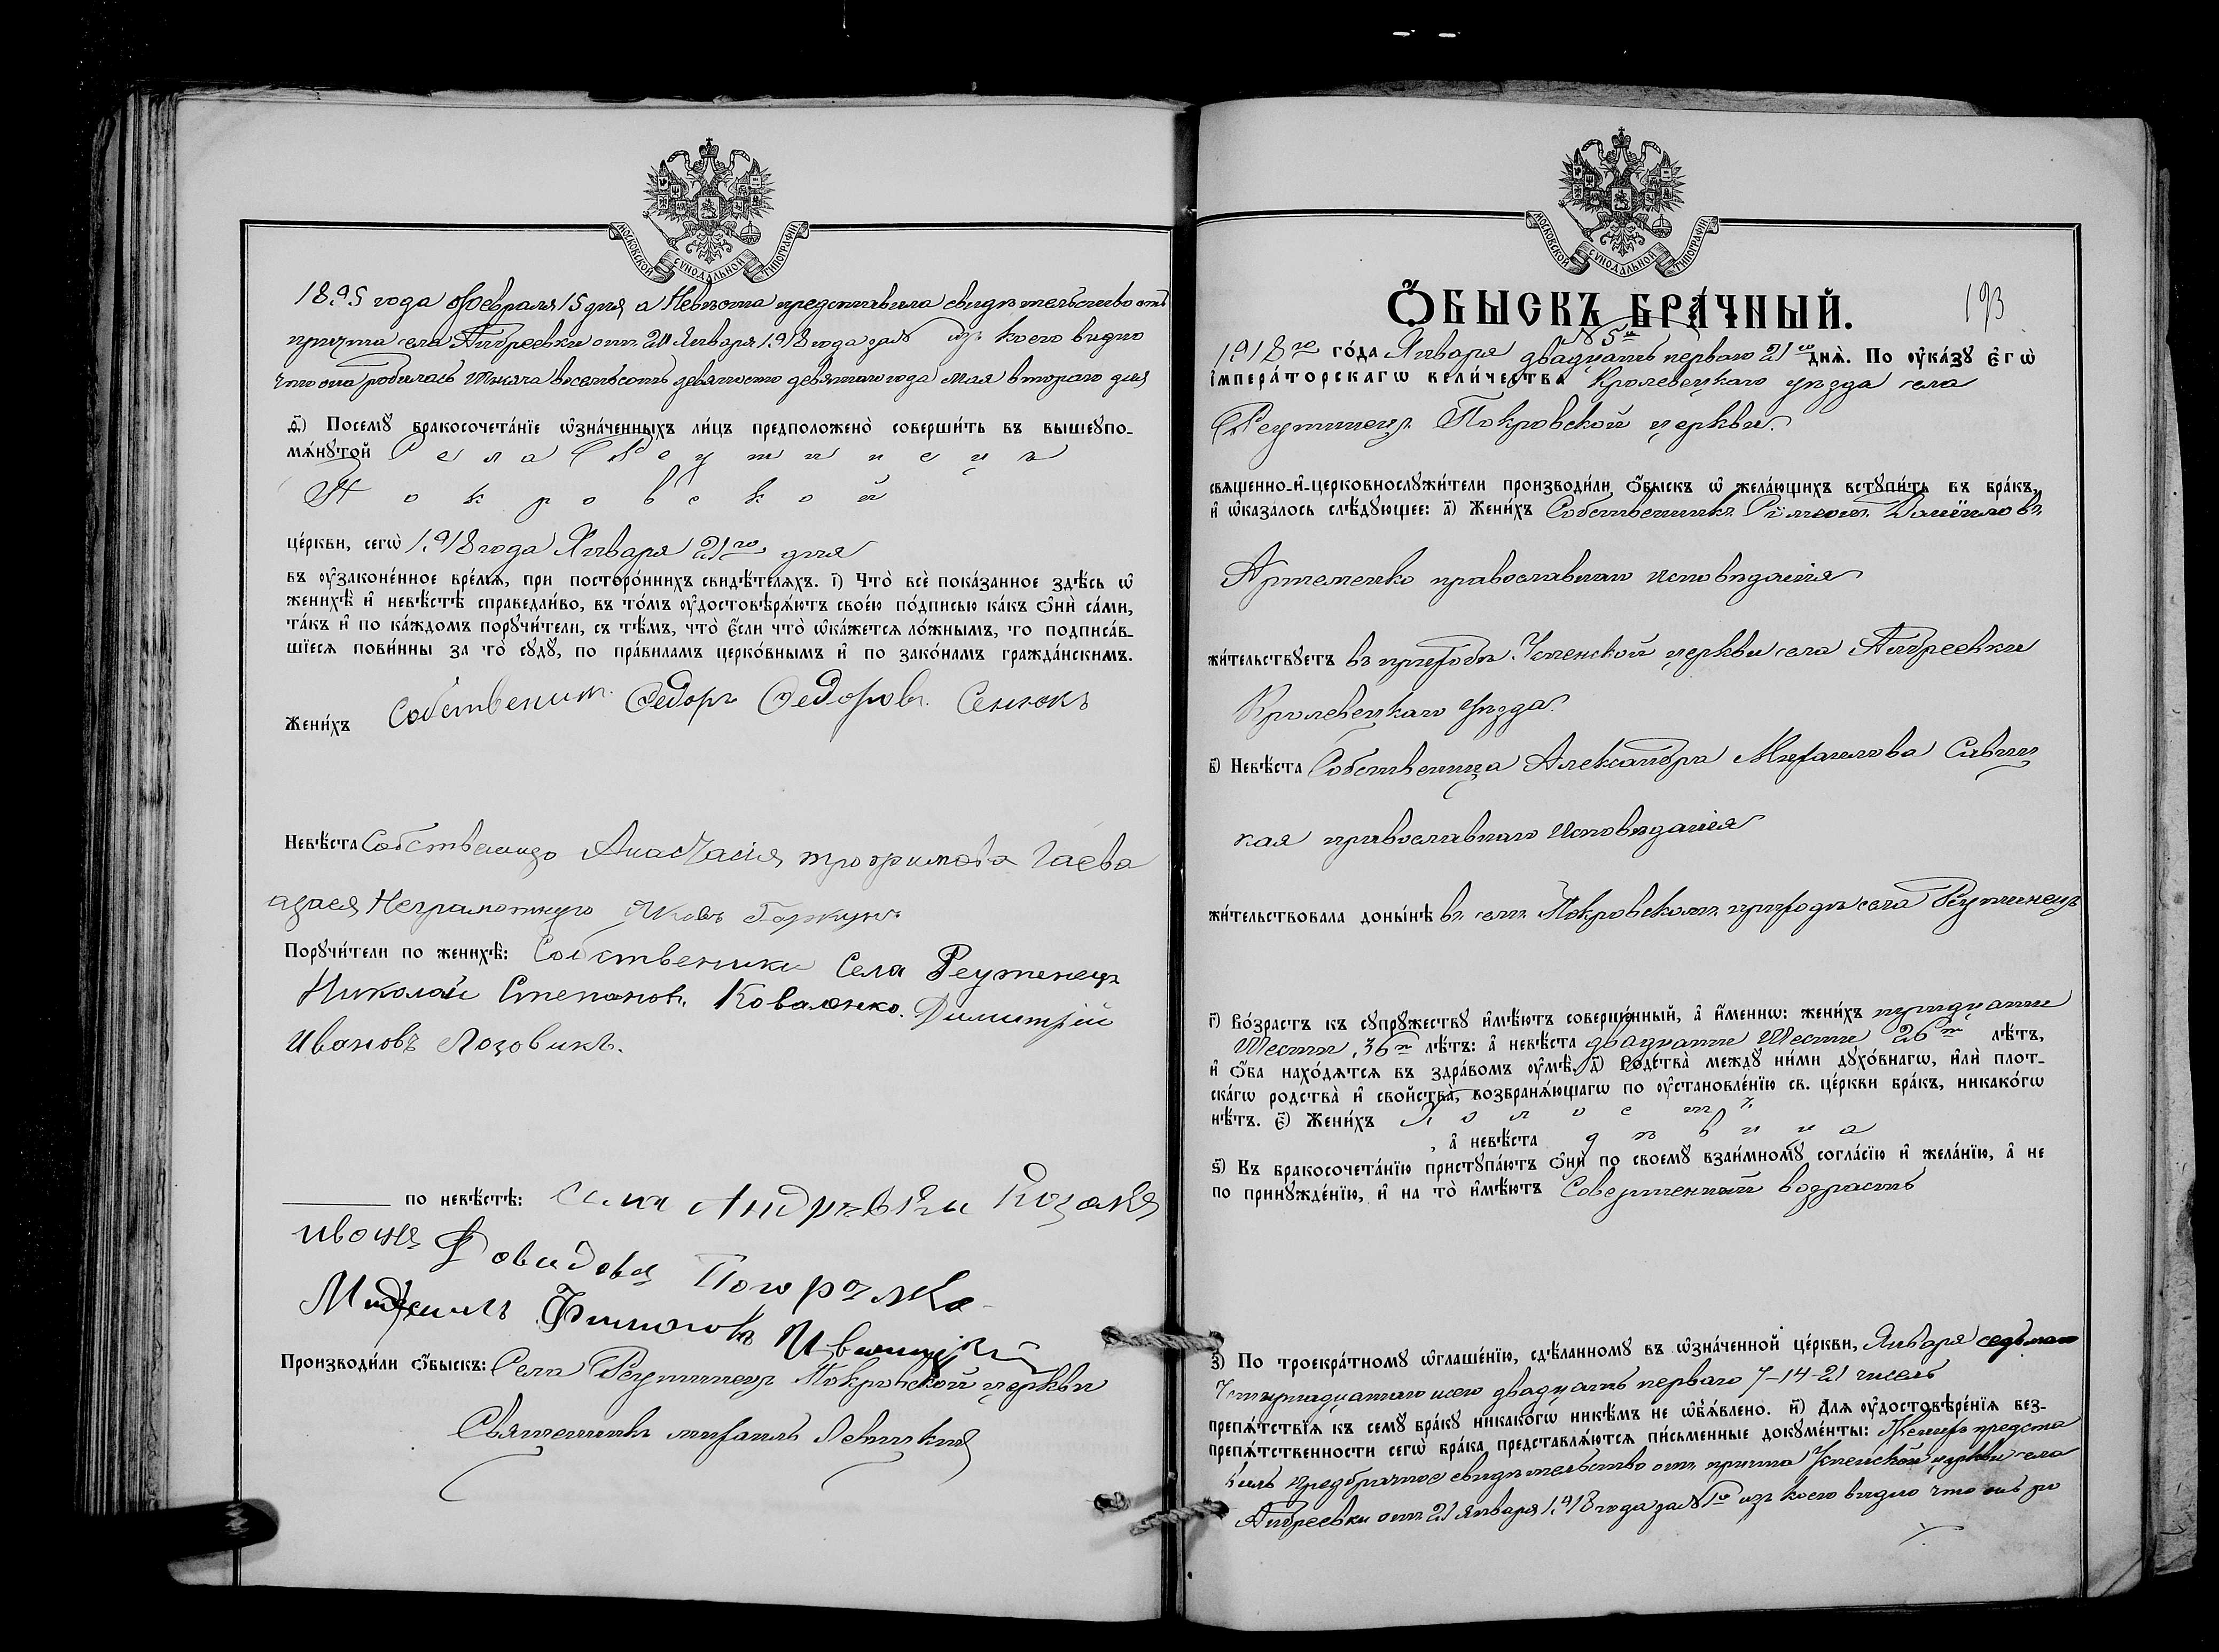 МОСКОВСКОЙ СѴНОДАЛЬНОЙ ТИПОГРАФІИ
1895 года Февраля 15 дня а Невѣста представила свидѣтельство отъ
причта села Андреевки отъ 21 Января 1918 года за № изъ коего видно
что она родилась тысяча восемьсотъ девяносто девятаго года Мая втораго дня
д҃) Посемꙋ бракосочета́нїе ѡзна́ченныхъ ли́цъ предположено̀ соверши́ть въ вышеꙋпо-
мѧ́нꙋтой Села Реутинецъ
Покровской
це́ркви, сегѡ̀ 1918 года Января 21го дня
въ ᲂу҆законе́нное вре́мѧ, при посторо́ннихъ свидѣ́телѧхъ. і҃) Что̀ всѐ пока́занное здѣ́сь ѡ
женихѣ̀ и҆ невѣ́стѣ справедли́во, въ то́мъ ᲂу҆достовѣрѧ́ютъ свое́ю по́дписью ка́къ ѻ҆нѝ са́ми,
та́къ и҆ по ка́ждомъ порꙋчи́тели, съ тѣ́мъ, что̀ є҆́сли что̀ ѡка́жетсѧ ло́жнымъ, то подписа́в-
шїесѧ пови́нны за то̀ сꙋдꙋ̀, по пра́виламъ церко́внымъ и҆ по зако́намъ гражда́нскимъ.
Жени́хъ Собственик Федоръ Федоровъ Сенюкъ
Невѣ́ста Собственицо Анастасия трофимова Гаева
азаея Неграмотнуго Яковъ Горкунъ
Порꙋчи́тели по женихѣ̀: Собственики Села Реутинецъ
Николай Степановъ Коваленко. Димитрій
Ивановъ Лозовикъ.
по невѣ́стѣ: Села Андреѣвки Козакъ
ивонъ Довидовъ Погорѣлко
Михаилъ Филиповъ Ивницкій
Производи́ли ѻ҆́быскъ: Села Реутинецъ Покровской церкви
Священникъ Михаилъ Левицкій
МОСКОВСКОЙ СѴНОДАЛЬНОЙ ТИПОГРАФІИ
Ѻ҆́БЫСКЪ БРА́ЧНЫЙ. 193
№ 5й
1918го го́да Января двадцать перваго 21го днѧ̀. По ᲂу҆ка́зꙋ є҆гѡ̀
і҆мпера́торскагѡ вели́чества Кролевецкаго уѣзда села
Реутинецъ Покровской церкви.
свѧщенно-и҆-церковнослꙋжи́тели производи́ли ѻ҆́быскъ ѡ жела́ющихъ встꙋпи́ть въ бра́къ,
и҆ ѡказа́лось слѣ́дꙋющее: а҃) Жени́хъ Собственникъ Данііловъ
Артеменко православнаго исповѣданія
жи́тельствꙋетъ въ приходѣ Успенской церкви села Андреевки
Кролевецкаго уѣзда.
в҃) Невѣ́ста Собственница Александра Михаилова Савиц
кая православнаго исповѣданія
жи́тельствовала доны́нѣ въ семъ Покровскомъ приходѣ села Реутинецъ
г҃) Во́зрастъ къ сꙋпрꙋ́жествꙋ и҆мѣ́ютъ соверше́нный, а҆ и҆́менно: жени́хъ тридцати
Шести, 36ти лѣ́тъ: а҆ невѣ́ста двадцати Шести 26ти лѣ́тъ,
и҆ ѻ҆́ба нахо́дѧтсѧ въ здра́вомъ ᲂу҆мѣ̀. д҃) Родства̀ междꙋ ни́ми дꙋхо́внагѡ, и҆лѝ плот-
ска́гѡ родства̀ и҆ свойства̀, возбранѧ́ющагѡ по ᲂу҆становле́нїю св. це́ркви бра́къ, никако́гѡ
нѣ́тъ. є҃) Жени́хъ холостъ
, а҆ невѣ́ста дѣвица
ѕ҃) Къ бракосочета́нїю пристꙋпа́ютъ ѻ҆нѝ по своемꙋ̀ взаи́мномꙋ согла́сїю и҆ жела́нїю, а҆ не
по принꙋжде́нїю, и҆ на то̀ и҆мѣ́ютъ Совершенный возрастъ
з҃) По троекра́тномꙋ ѡглаше́нїю, сдѣ́ланномꙋ въ ѡзна́ченной це́ркви, Января седьмаго
Четырнадцатаго и сего двадцать перваго 7-14-21 числъ
препѧ́тствїѧ къ семꙋ̀ бра́кꙋ никако́гѡ никѣ́мъ не ѡб̾ѧ́влено. и҃) Длѧ ᲂу҆достовѣре́нїѧ без-
препѧ́тственности сегѡ̀ бра́ка представлѧ́ютсѧ пи́сьменные докꙋме́нты: Женихъ предста
вилъ предбрачное свидѣтельство отъ причта Успенской церкви села
Андреевки отъ 21 Января 1918 года за № изъ коего видно что онъ ро